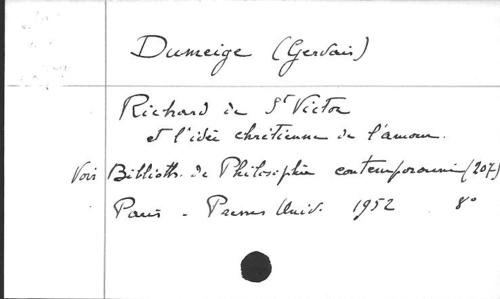 Dumeige (Gervais)
Richard de St Victor
et l'idée chrétienne de l'amour.
Voir Biblioth. de Philosophie contemporaine (207)
Paris - Presses Univ. 1952 8°